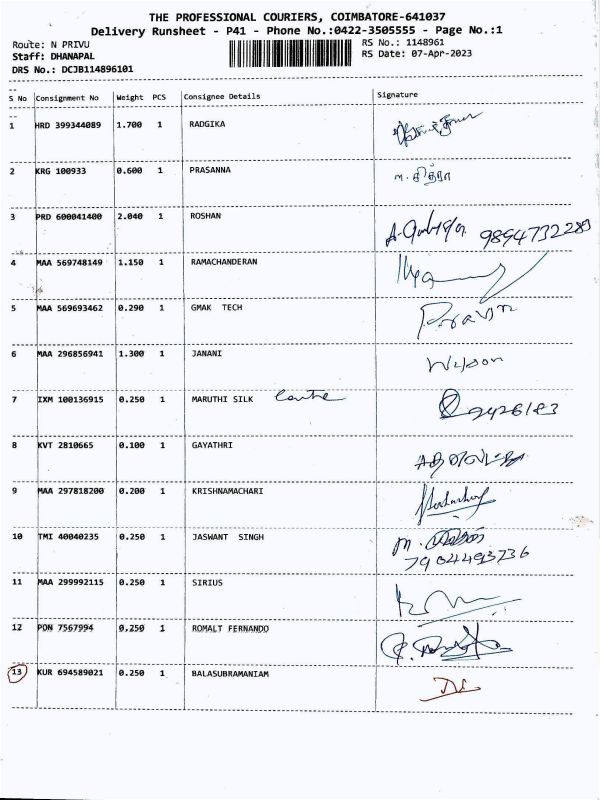 THE PROFESSIONAL COURIERS, COIMBATORE-641037
Delivery Runsheet - P41 - Phone No.:0422-3505555 - Page No.:1
Route: N PRIVU RS No.: 1148961
Staff: DHANAPAL RS Date: 07-Apr-2023
DRS No.: DCJB114896101
S No Consignment No Weight PCS Consignee Details Signature
1 HRD 399344089 1.700 1 RADGIKA
2 KRG 100933 0.600 1 PRASANNA ந. சித்ரா
3 PRD 600041400 2.040 1 ROSHAN 9894732283
4 MAA 569748149 1.150 1 RAMACHANDERAN
5 MAA 569693462 0.290 1 GMAK TECH
6 MAA 296856941 1.300 1 JANANI
7 IXM 100136915 0.250 1 MARUTHI SILK
8 KVT 2810665 0.100 1 GAYATHRI
9 MAA 297818200 0.200 1 KRISHNAMACHARI
10 TMI 40040235 0.250 1 JASWANT SINGH
7904493736
11 MAA 299992115 0.250 1 SIRIUS
12 PON 7567994 0.250 1 ROMALT FERNANDO
13 KUR 694589021 0.250 1 BALASUBRAMANIAM